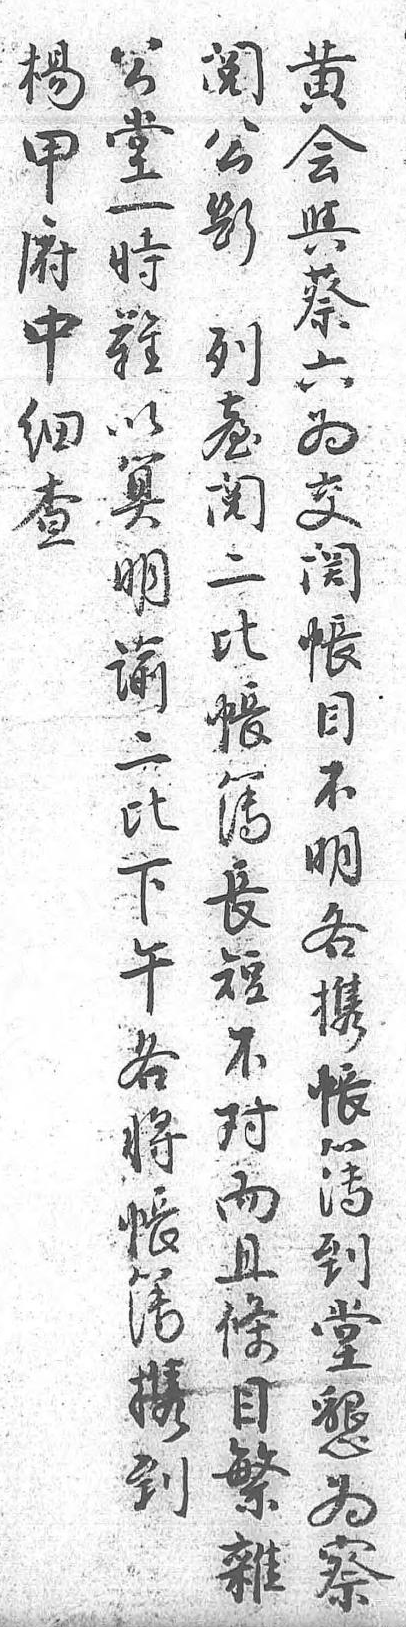 黄会與蔡六为交関帳目不明各攜帳簿到堂懇为察
閱公斷　列臺閱二比帳簿長短不对而且條目繁雜
公堂一時難以算明諭二比下午各將帳簿攜到
楊甲府中細查